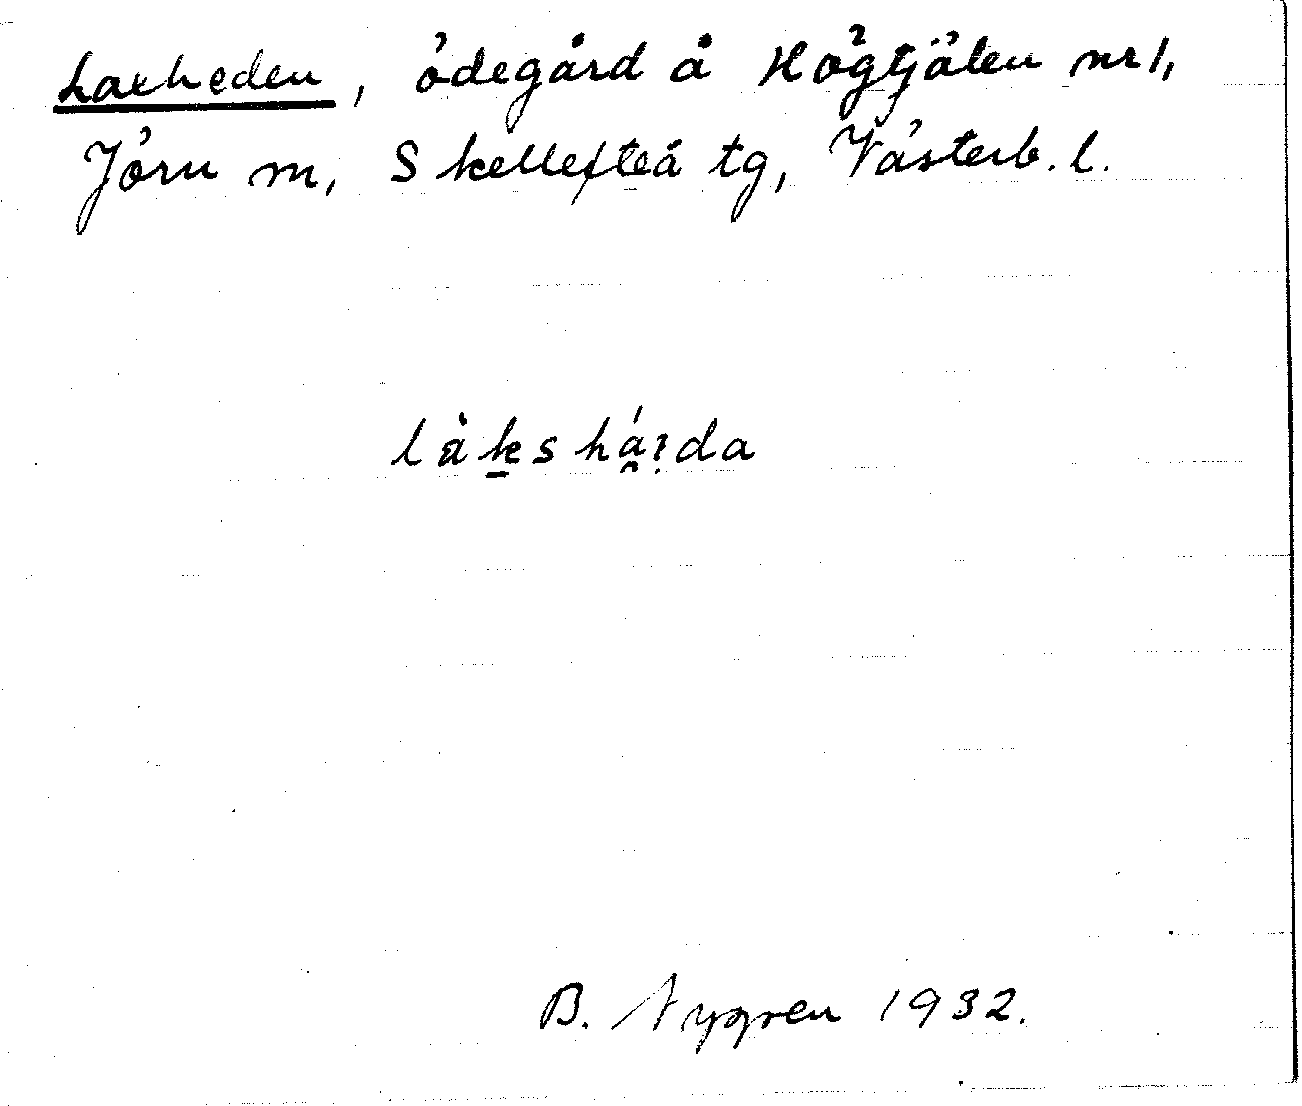 Laxheden, ödegård å Högtjälen nr 1,
Jörn sn, Skellefteå tg, Västerb. l.
làksháida
B. Nygren 1932.